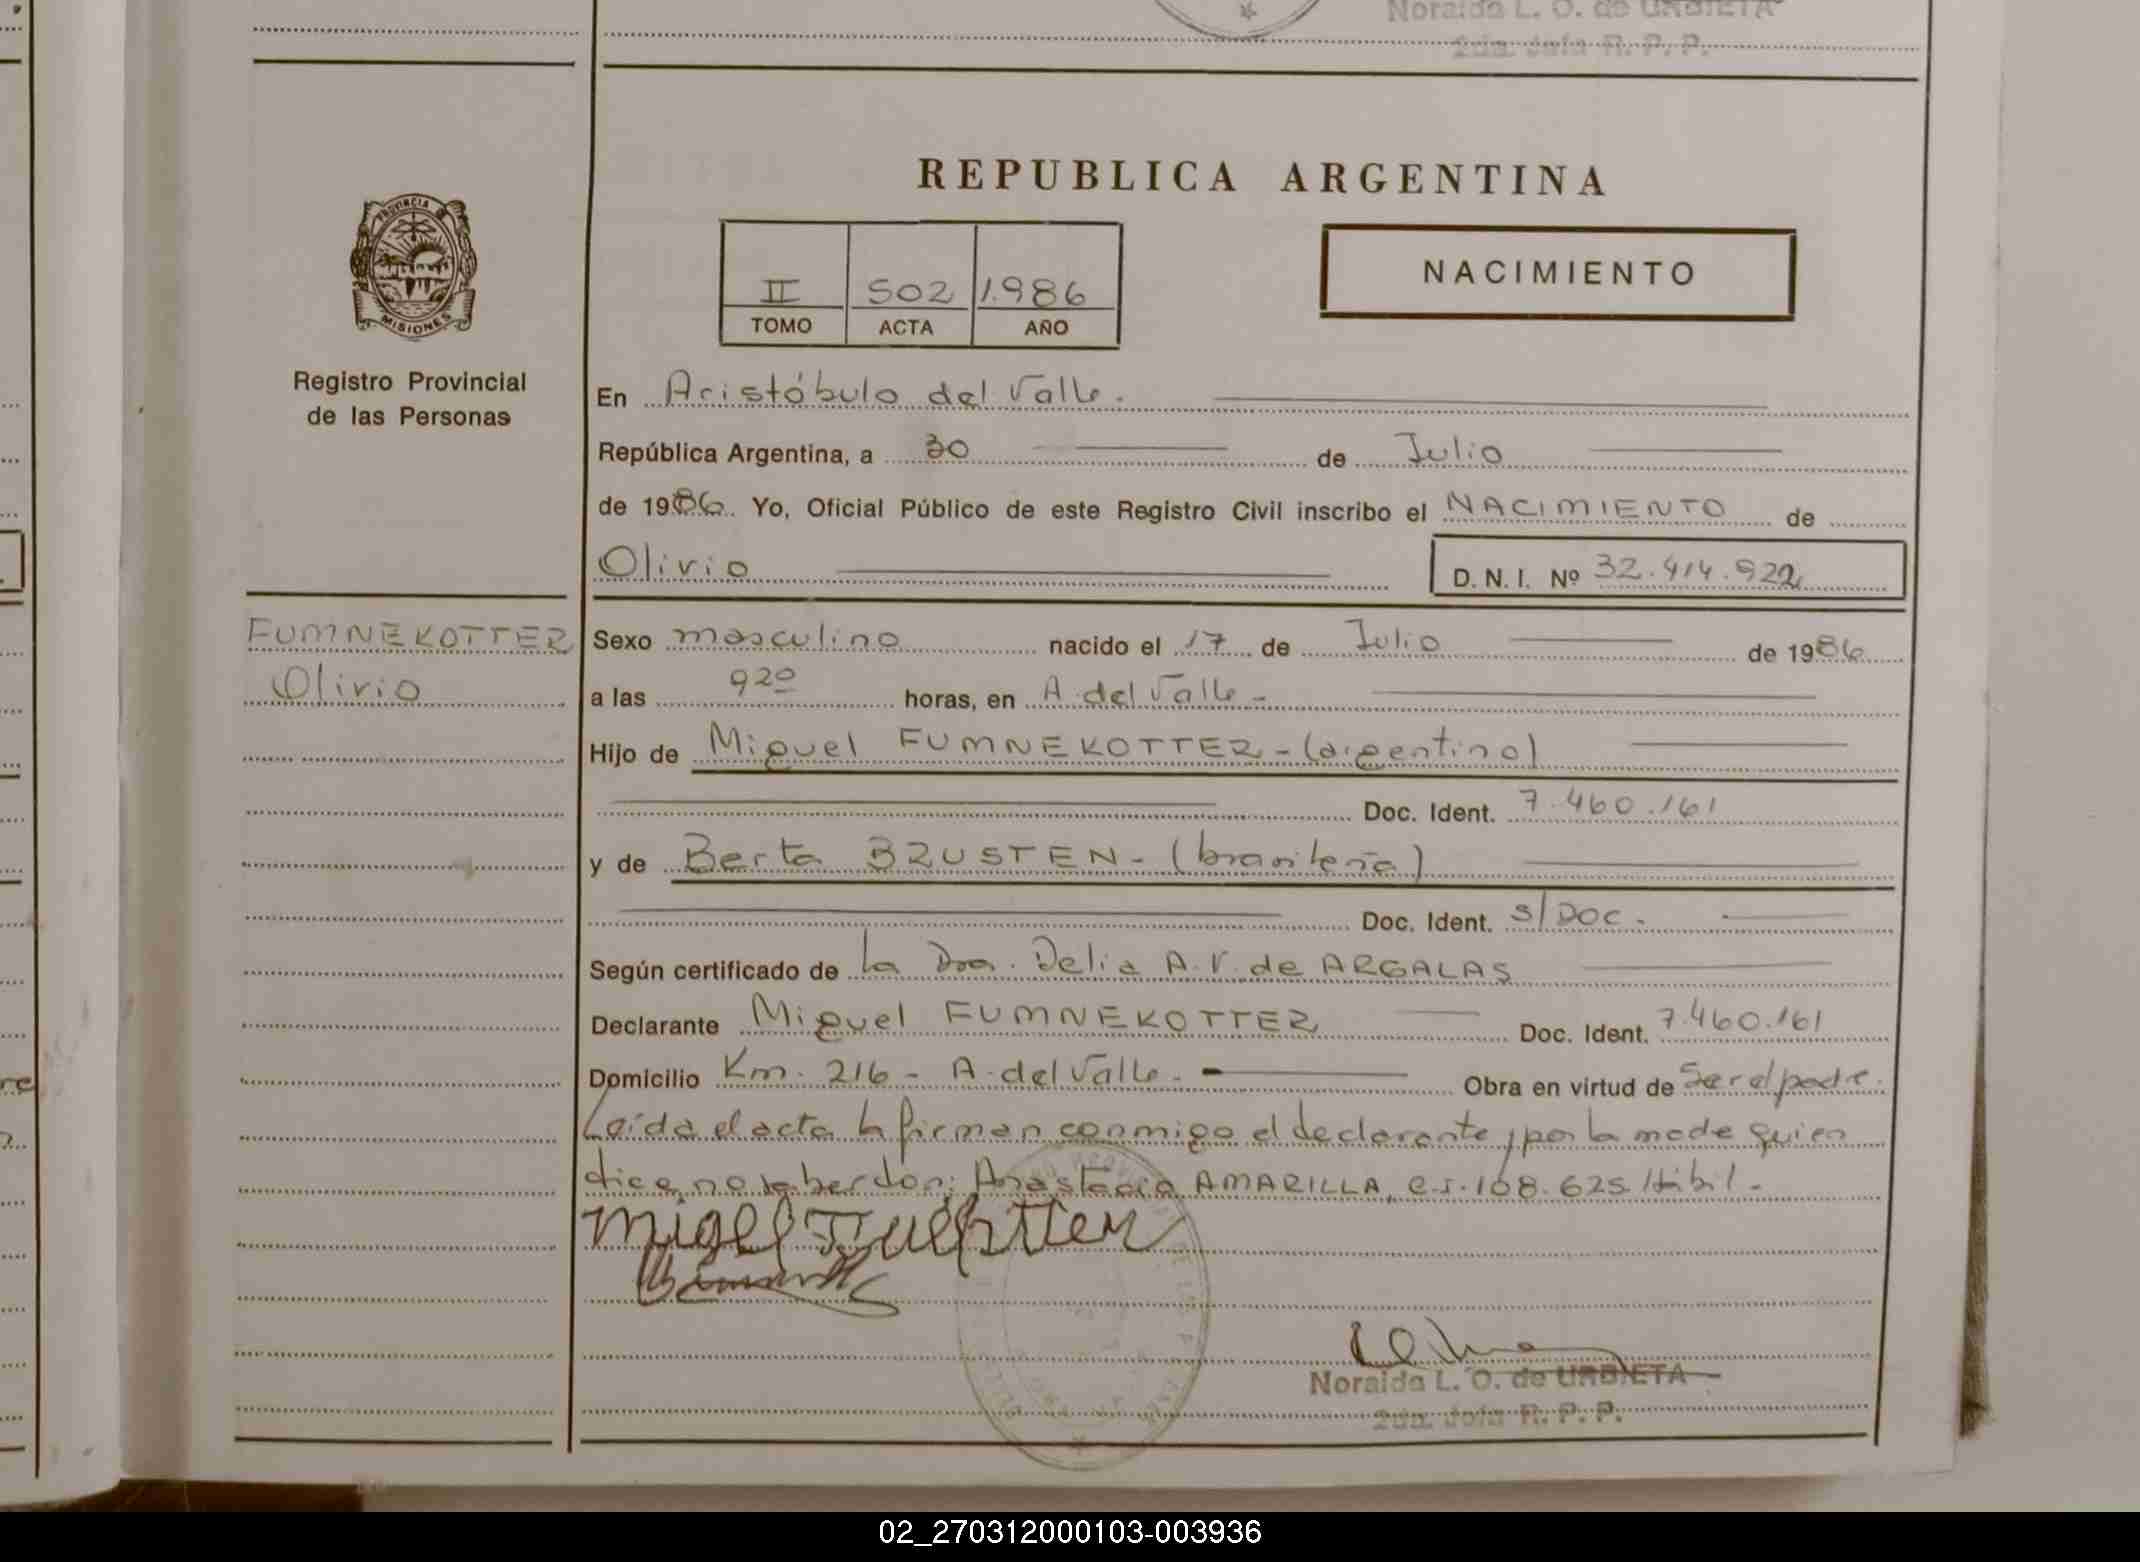 Noraida L. O. de URBIETA
2da. Jefa R. P. P.
REPUBLICA ARGENTINA
PROVINCIA DE
MISIONES
II 502 1.986
TOMO ACTA AÑO
NACIMIENTO
Registro Provincial
de las Personas
En Aristóbulo del Valle.
República Argentina, a 30 de Julio
de 1986. Yo, Oficial Público de este Registro Civil inscribo el NACIMIENTO de
Olivio
D. N. I. Nº 32.414.922
FUMNEKOTTER
Olivio
Sexo masculino nacido el 17 de Julio de 1986
a las 9 20 horas, en A. del Valle-
Hijo de Miguel FUMNEKOTTER-(argentino)
Doc. Ident. 7.460.161
y de Berta BRUSTEN-(brasileña)
Doc. Ident. S/DOC.
Según certificado de la Dra. Delia A.V. de ARGALAS
Declarante Miguel FUMNEKOTTER Doc. Ident. 7.460.161
Domicilio Km. 216 - A. del Valle. - Obra en virtud de Ser el padre.
Leída el acta la firman conmigo el declarante, por la madre quien
dice no saber
Anastacia AMARILLA, C.I. 108.625 Hábil.-
Noraida L. O. de URBIETA
2da. Jefa R. P. P.
02_270312000103-003936